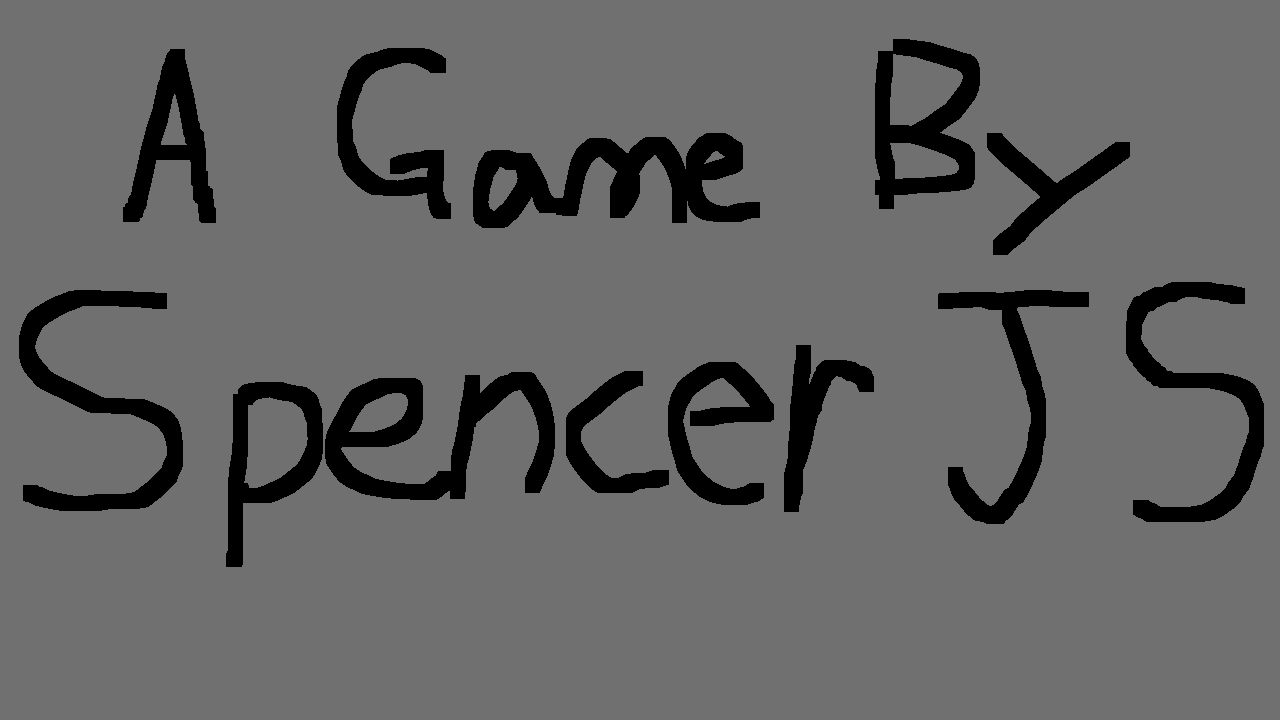 A Game By
Spencer JS